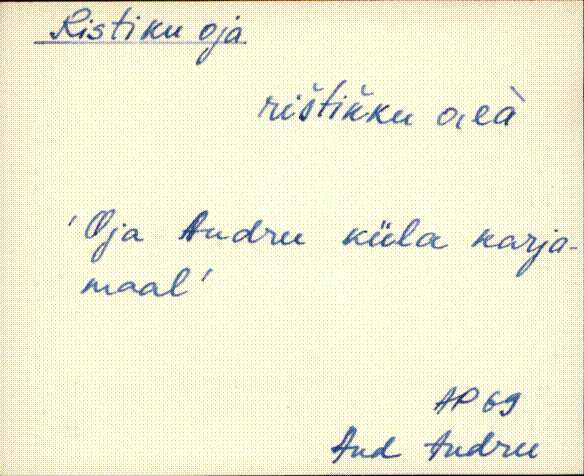 Ristiku oja
rištik̆ku o̭eà
'Oja Andru küla karja-
maal'
AP 69
Aud Andru